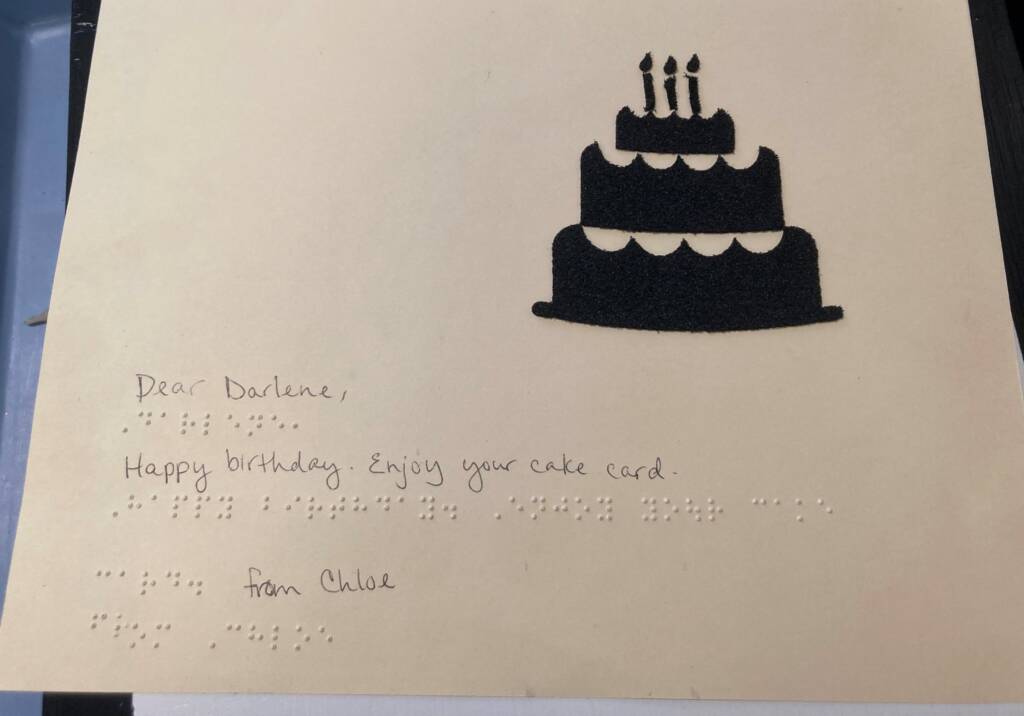 Dear Darlene,
⠠⠙⠁⠗⠇⠑⠝⠑⠂
Happy birthday. Enjoy your cake card.
⠠⠓⠁⠏⠏⠽ ⠃⠊⠗⠞⠓⠙⠁⠽⠲ ⠠⠑⠝⠚⠕⠽ ⠽⠕⠥⠗ ⠉⠁⠅⠑
⠉⠁⠗⠙⠲ from Chloe
⠋⠗⠕⠍ ⠠⠉⠓⠇⠕⠑